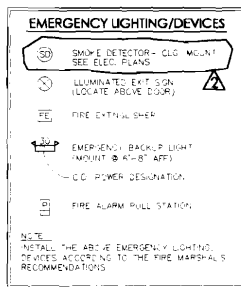 EMERGENCY LIGHTING/DEVICES
SD
SMOKE DETECTOR - CLG MOUNT
SEE ELEC. PLANS
ILLUMINATED EXIT SIGN
(LOCATE ABOVE DOOR)
2
FE
FIRE EXTINGUISHER
EMERGENCY BACKUP LIGHT
(MOUNT @ 6'-8" AFF)
POWER DESIGNATION
FIRE ALARM PULL STATION
NOTE
INSTALL THE ABOVE EMERGENCY LIGHTING
DEVICES ACCORDING TO THE FIRE MARSHAL'S
RECOMMENDATIONS